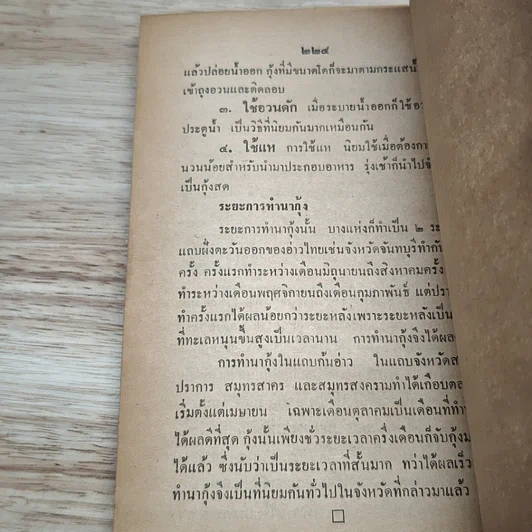 ๒๒๔
แล้วปล่อยน้ำออก กุ้งที่มีขนาดโตก็จะมาตามกระแสน้ำ
เข้าถุงอวนและติดลอบ
๓. ใช้อวนดัก เมื่อระบายน้ำออกก็ใช้
ประตูน้ำ เป็นวิธีที่นิยมกันมากเหมือนกัน
๔. ใช้แห การใช้แห นิยมใช้เมื่อต้องการ
นวนน้อยสำหรับนำมาประกอบอาหาร รุ่งเช้าก็นำไป
เป็นกุ้งสด
ระยะการทำนากุ้ง
ระยะการทำนากุ้งนั้น บางแห่งก็ทำเป็น ๒
แถบฝั่งตะวันออกของอ่าวไทยเช่นจังหวัดจันทบุรีทำกัน
ครั้ง ครั้งแรกทำระหว่างเดือนมิถุนายนถึงสิงหาคมครั้ง
ทำระหว่างเดือนพฤศจิกายนถึงเดือนกุมภาพันธ์ แต่
ทำครั้งแรกได้ผลน้อยกว่าระยะหลังเพราะระยะหลังเป็น
ที่ทะเลหนุนขึ้นสูงเป็นเวลานาน การทำนากุ้งจึงได้ผล
การทำนากุ้งในแถบก้นอ่าว ในแถบจังหวัด
ปราการ สมุทรสาคร และสมุทรสงครามทำได้เกือบ
เริ่มตั้งแต่เมษายน เฉพาะเดือนตุลาคมเป็นเดือนที่ทำ
ได้ผลดีที่สุด กุ้งนั้นเพียงชั่วระยะเวลาครึ่งเดือนก็จับกุ้ง
ได้แล้ว ซึ่งนับว่าเป็นระยะเวลาที่สั้นมาก ทว่าได้ผลเร็ว
ทำนากุ้งจึงเป็นที่นิยมกันทั่วไปในจังหวัดที่กล่าวมาแล้ว